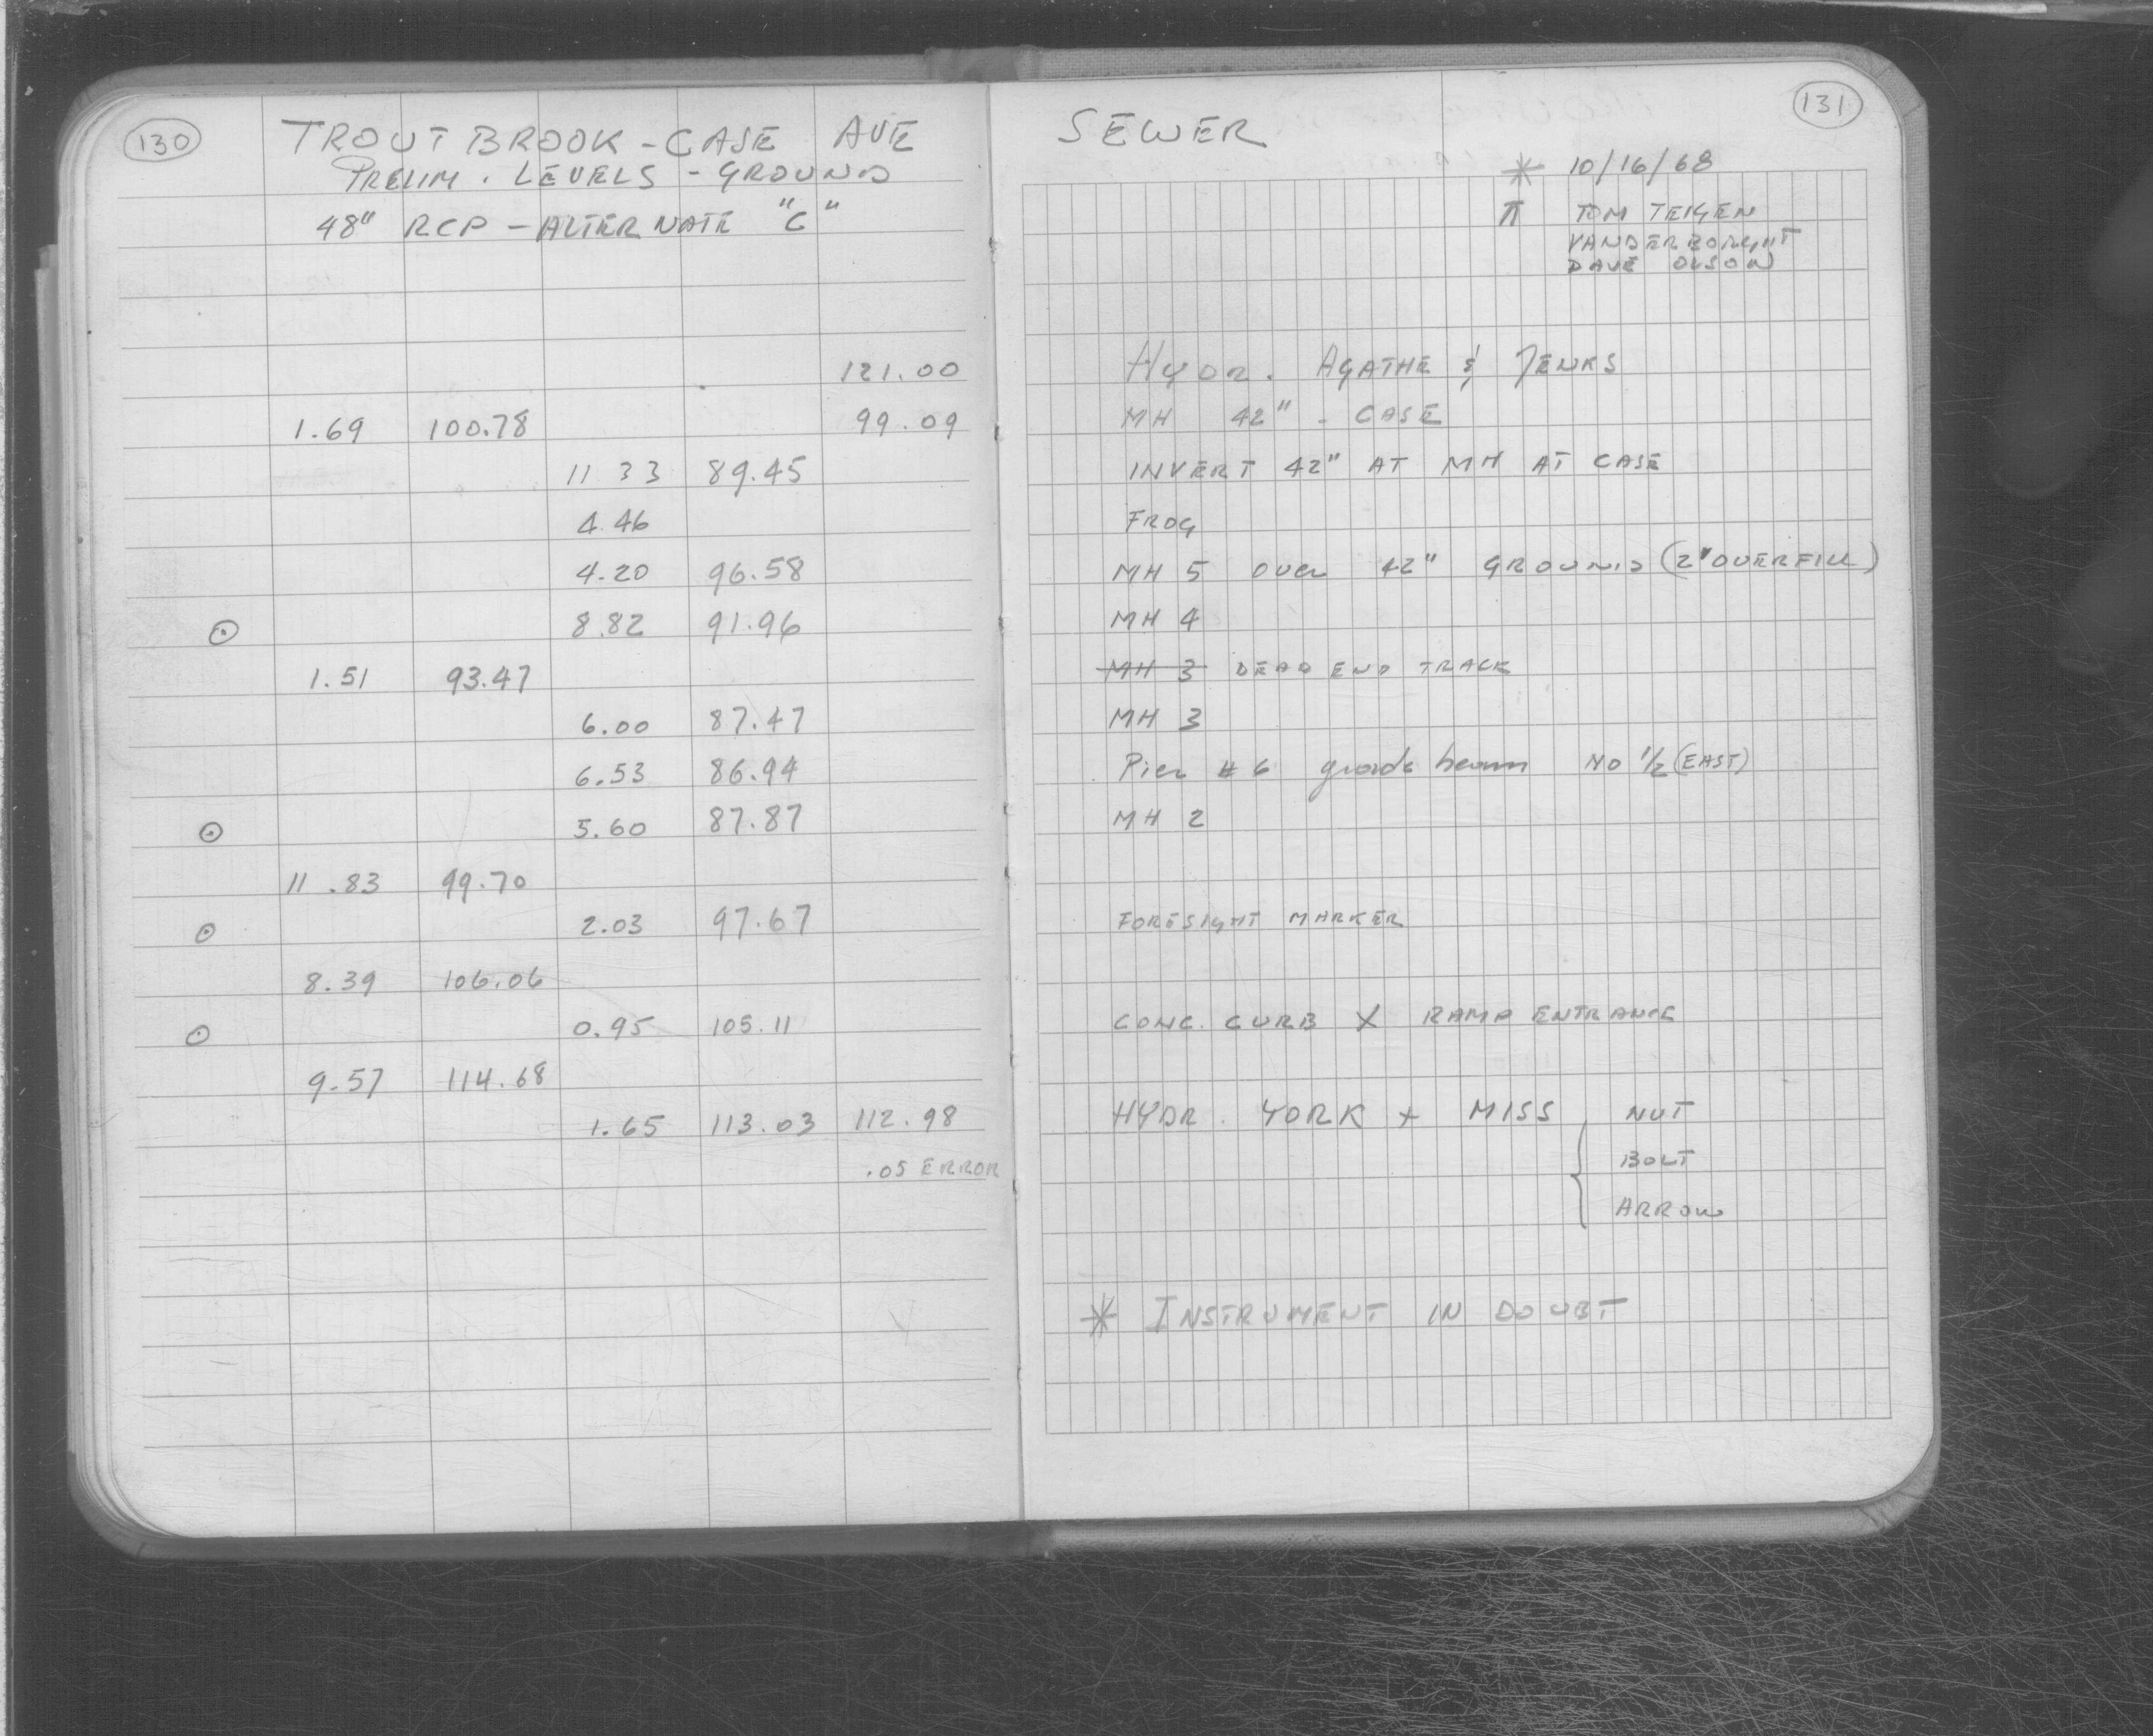 130
TROUT BROOK - CASE AVE
PRELIM. LEVELS - GROUND
48" RCP - ALTERNATE "C"
121.00
1.69 100.78 99.09
11 33 89.45
4.46
4.20 96.58
⊙ 8.82 91.96
1.51 93.47
6.00 87.47
6.53 86.94
⊙ 5.60 87.87
11.83 99.70
⊙ 2.03 97.67
8.39 106.06
⊙ 0.95 105.11
9.57 114.68
1.65 113.03 112.98
.05 ERROR
131
SEWER
* 10/16/68
π TOM TEIGEN
VANDERBORGHT
DAVE OLSON
HYDR. AGATHE & JENKS
MH 42" - CASE
INVERT 42" AT MH AT CASE
FROG
MH 5 over 42" GROUND (2' OVERFILL)
MH 4
MH 3 DEAD END TRACK
MH 3
Pier # 6 grade beam NO 1/2 (EAST)
MH 2
FORESIGHT MARKER
CONC. CURB X RAMP ENTRANCE
HYDR. YORK + MISS { NUT
BOLT
ARROW
* INSTRUMENT IN DOUBT